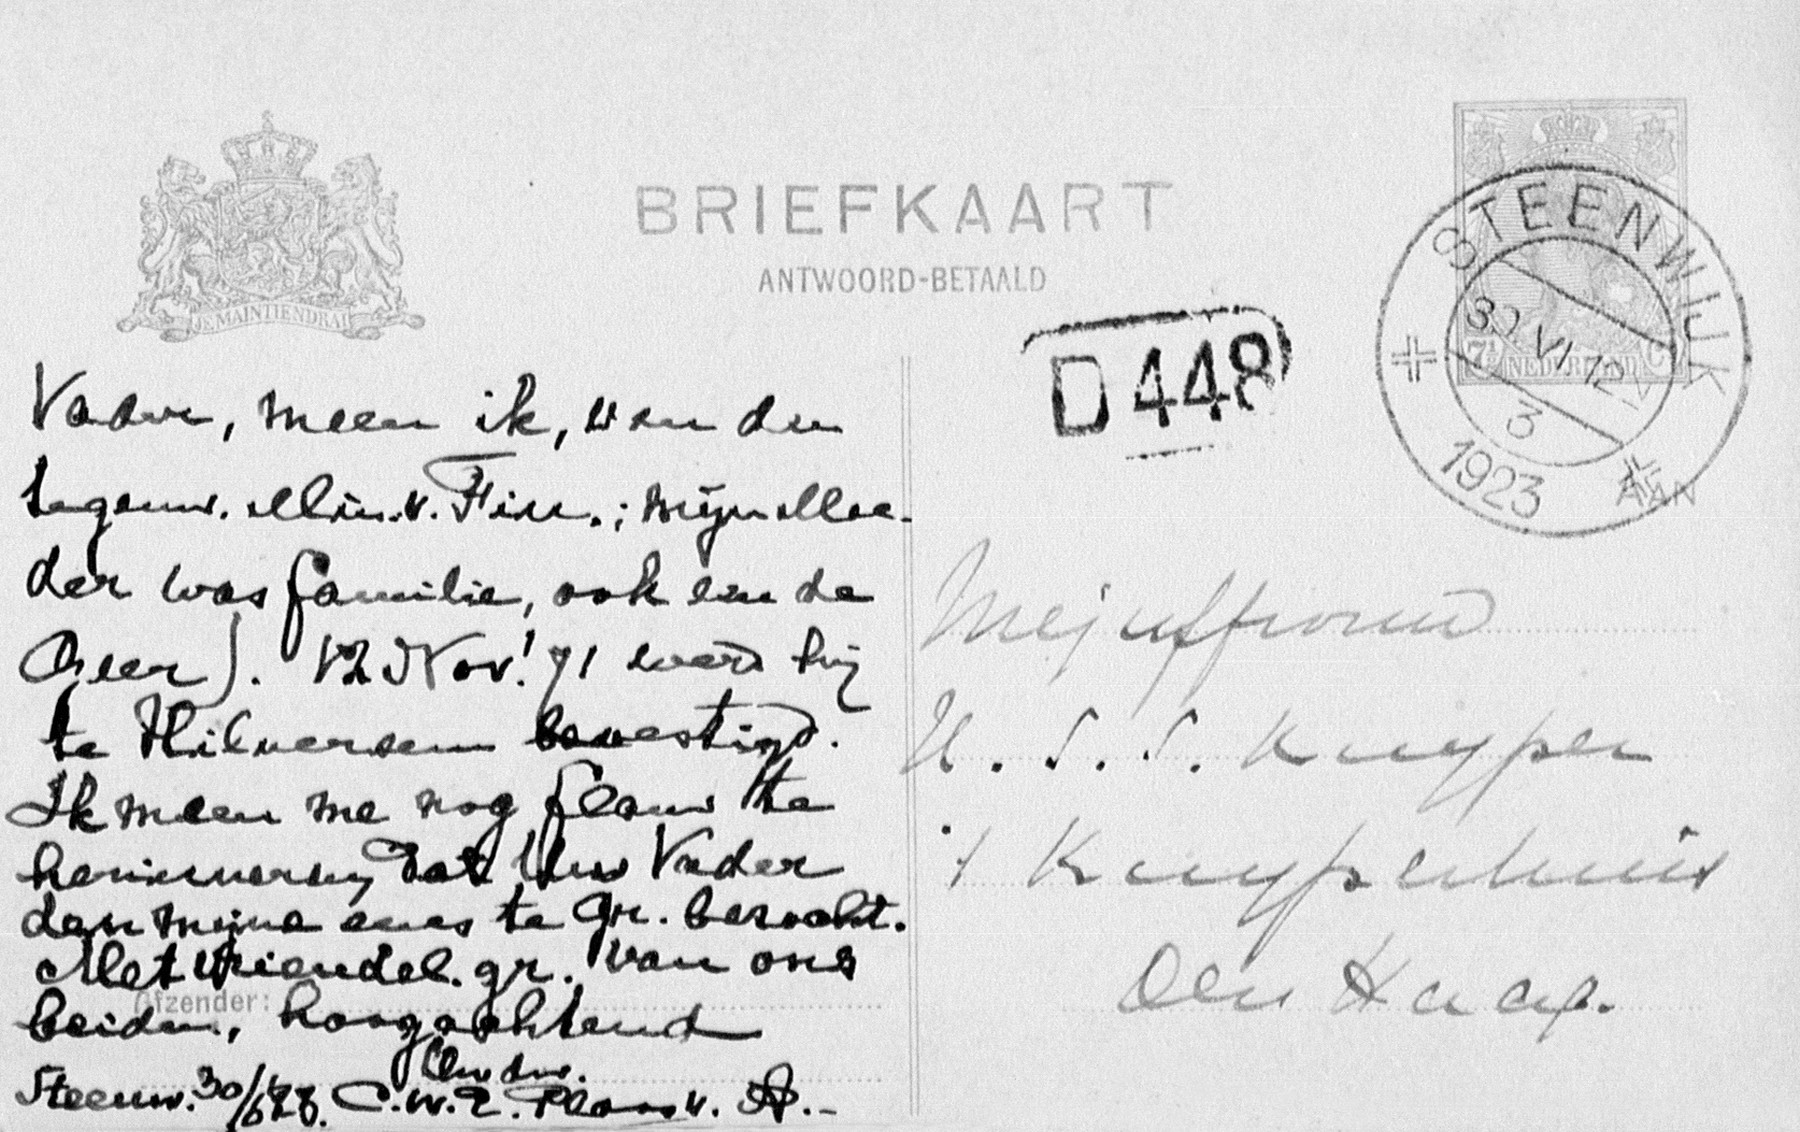 BRIEFKAART
ANTWOORD-BETAALD
JE MAINTIENDRAI
STEENWIJK
30 VI 12
3
1923
7½ NEDERLAND C
D 448
AAN
Vader, meen ik, van den
tegenw. Min. v. Fin.; mijn Moe-
der was familie, ook van de
Geer). 12 Nov. '71 werd hij
te Hilversum bevestigd.
Ik meen me nog flauw te
herinneren, dat Uw Vader
den mijne eens te Gr. bezocht.
Met vriendel. gr. van ons
Afzender:
beiden, hoogachtend
Uw dw.
Steenw. 30/6 '23. C. W. E. Ploos v. A.-
Mejuffrouw
H. S. S. Kuyper
't Kuyperhuis
Den Haag.